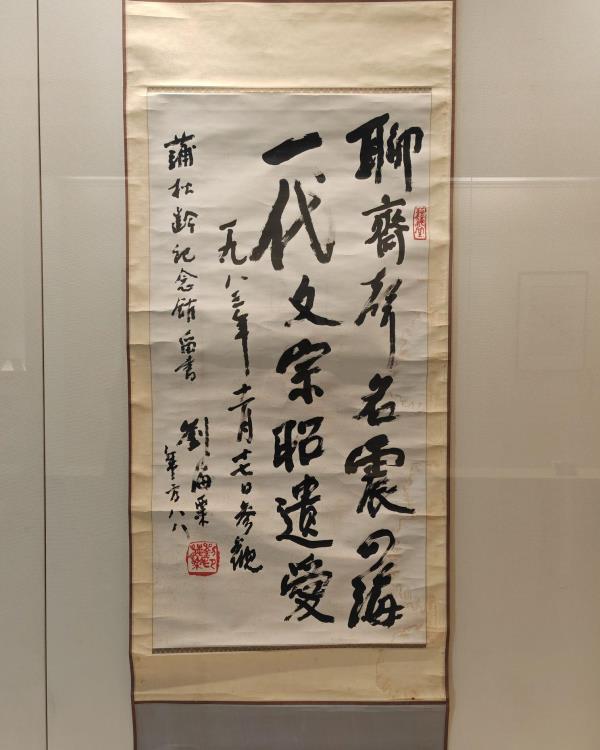 聊齋聲名震四海
一代文宗昭遺愛
一九八三年十一月十七日参觀
蒲松齡記念館留書
劉海粟
年方八八